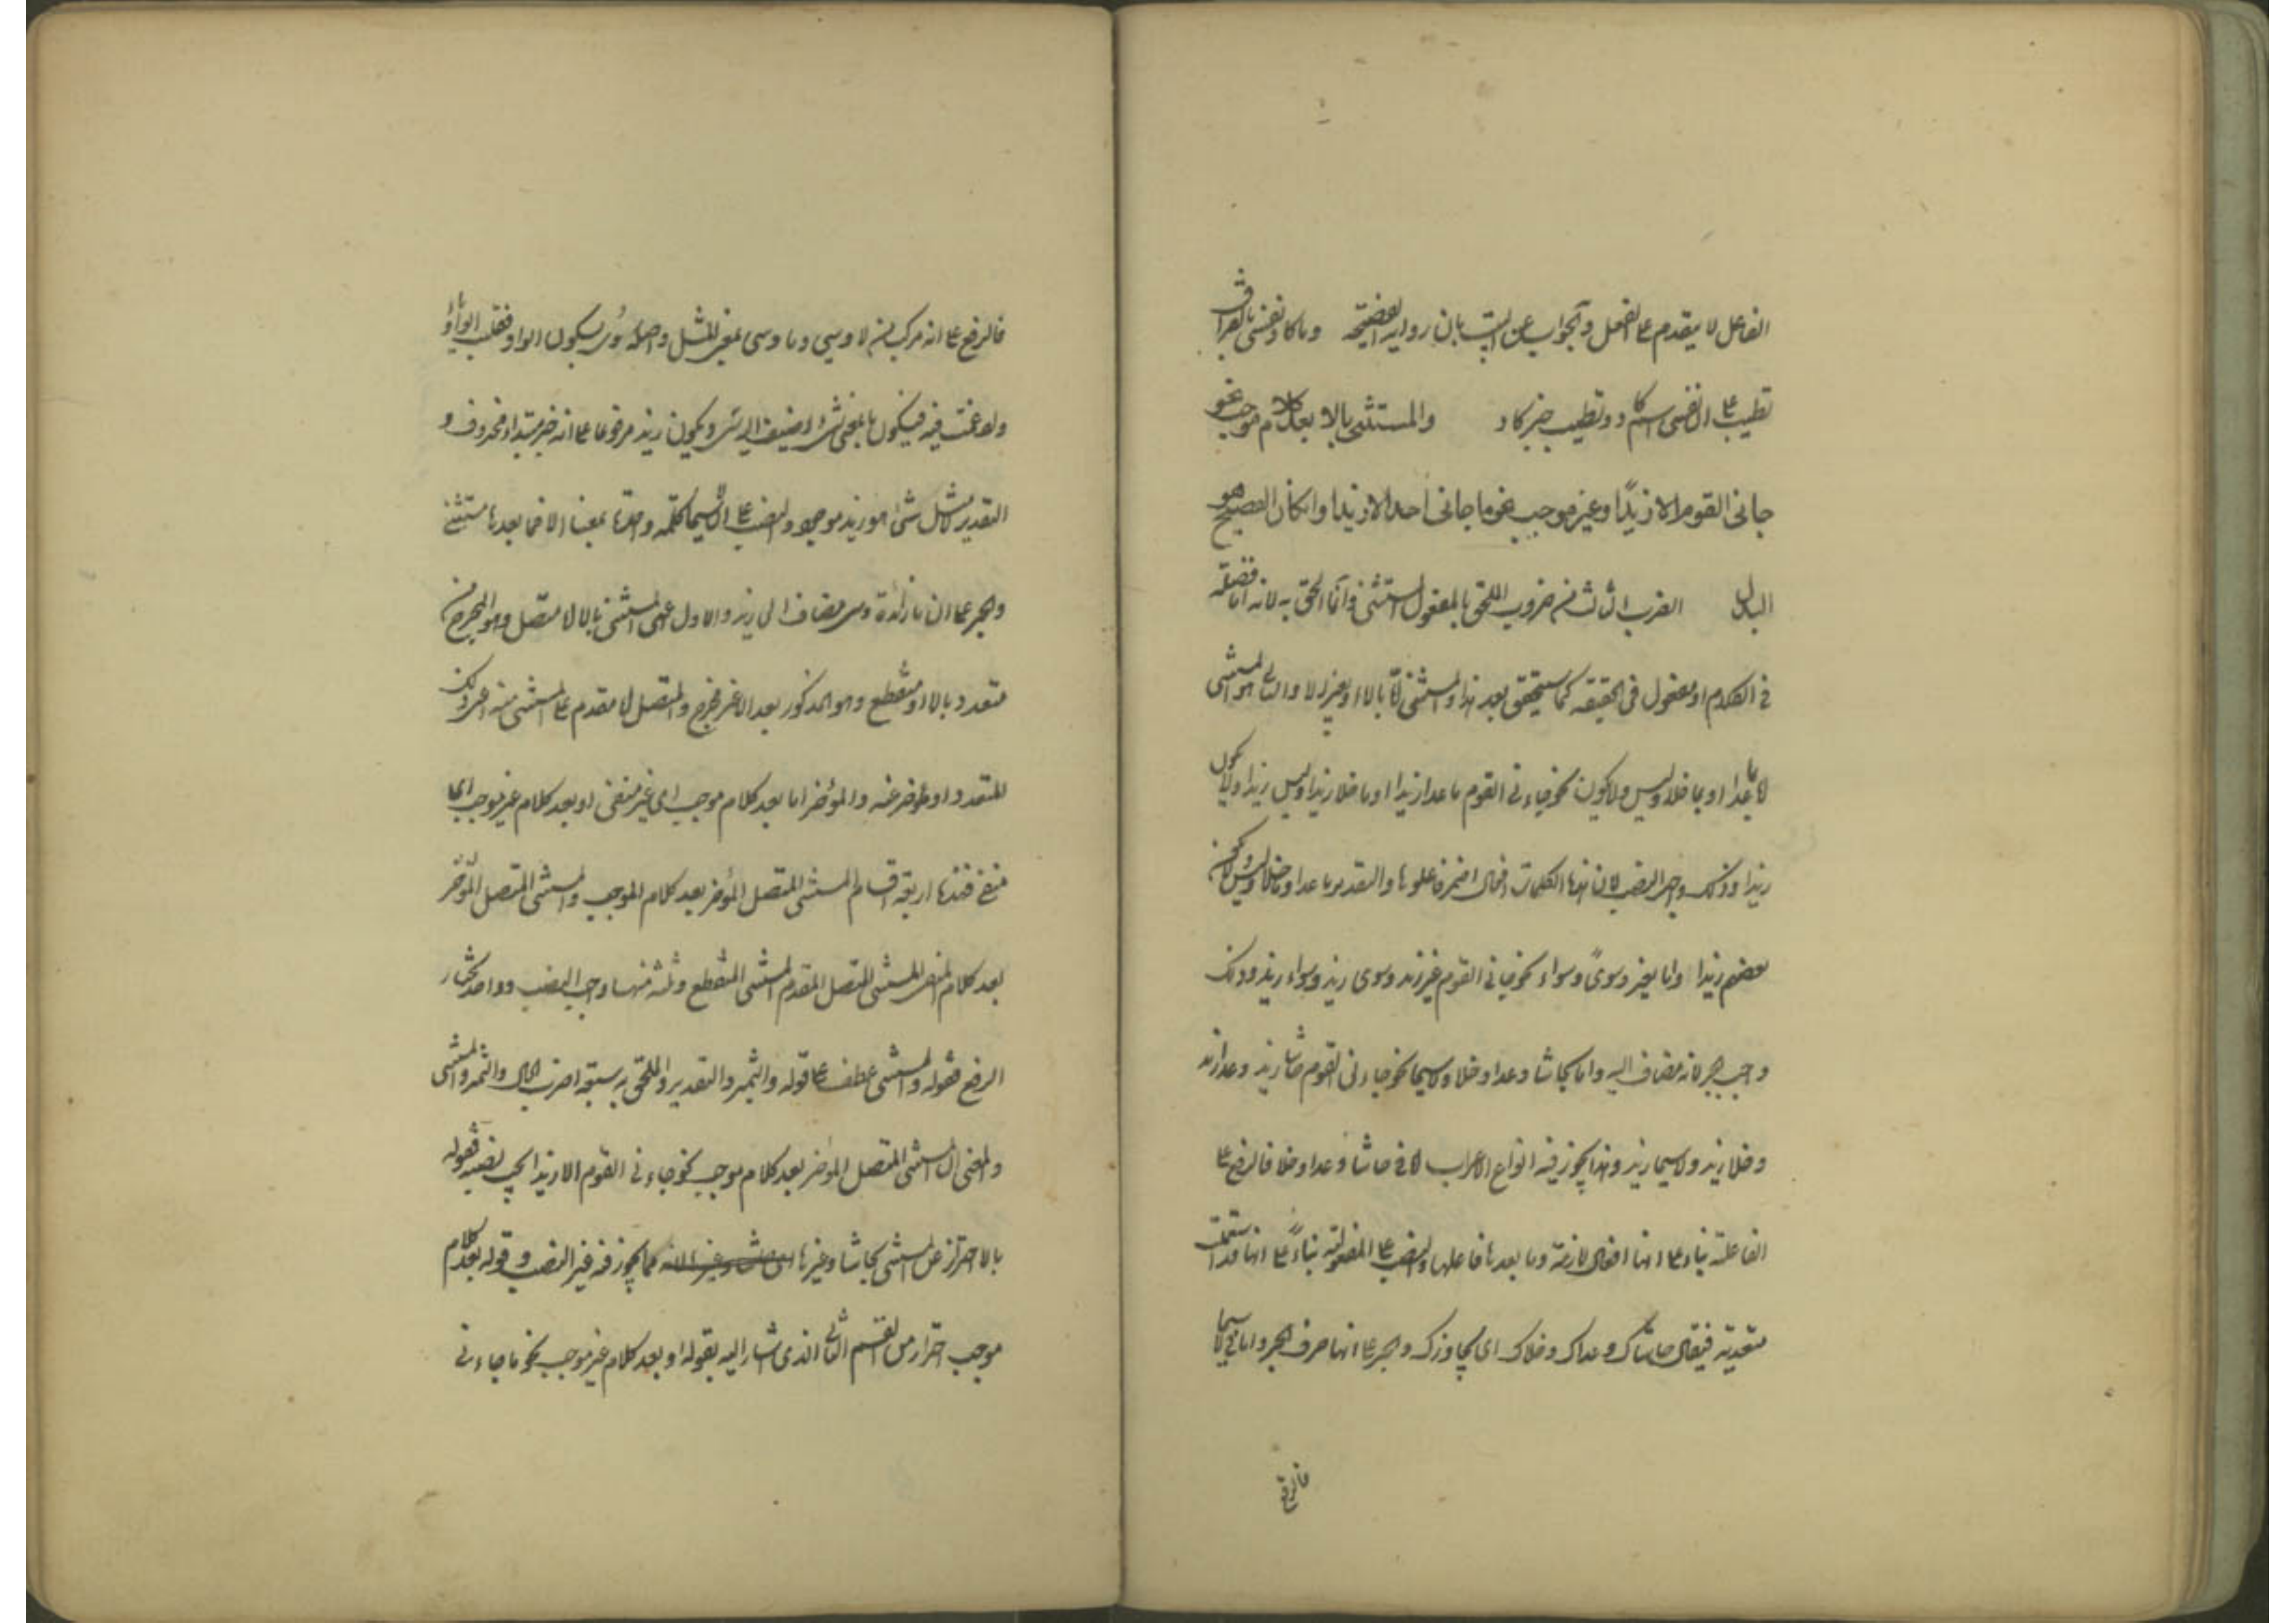 الفاعل لا يتقدم على الفعل والجواب عن البيت بان رواية الصحيحة وما كاد نفسى بالفراق
تطيب على ان نفسى اسم كاد وتطيب خبر كاد والمستثنى بالا بعد كلام موجب نحو
جاءنى القوم الا زيدًا وغير موجب نحو ما جاءنى احد الا زيدا وانكان الفصيح هو
البدل الضرب الثالث من ضروب الملحق بالمفعول المستثنى وانما الحق به لانه اما فضلة
فى الكلام او مفعول فى الحقيقة كما ستحقق بعد هذا والمستثنى اما بالا او بغير الا والثانى هو المستثنى
بما عدا او بما خلا وليس ولا يكون نحو جاءنى القوم ما عدا زيدا او ما خلا زيدا وليس زيدا ولا يكون
زيدا وذلك واجب النصب لان هذه الكلمات افعال اضمر فاعلوها والتقدير ما عدا وما خلا وليس ولا يكون
بعضهم زيدا واما بغير وسوى وسواء نحو جاءنى القوم غير زيد وسوى زيد وسواء زيد وذلك
واجب الجر لانه مضاف اليه واما بحاشا وعدا وخلا ولا سيما نحو جاءنى القوم حاشا زيد وعدا زيد
وخلا زيد ولا سيما زيد وهذا يجوز فيه انواع الاعراب اما فى حاشا وعدا وخلا فالرفع على
الفاعلية بناء على انها افعال لازمة وما بعدها فاعلها والنصب على المفعولية بناءً على انها قد استعملت
متعدية فيقال حاشاك وعداك وخلاك اى يجاوزك والجر على انها حرف الجر واما فى لا سيما
فالرفع
فالرفع على انه مركب من لا وسى وما وسى بمعنى المثل واصله سوى بسكون الواو فقلب الواو ياء
وادغمت فيه فيكون ما بمعنى شىء اضيف اليه سى ويكون زيد مرفوعا على انه خبر مبتداء محذوف و
التقدير لا مثل شىء هو زيد موجود والنصب على ان لا سيما كلمة واحدة بمعنى الا فما بعدها مستثنى
والجر على ان ما زائدة وسى مضاف الى زيد والاول اعنى المستثنى بالا اما متصل وهو المخرج من
متعدد بالا او منقطع وهو المذكور بعد الا غير مخرج والمتصل اما مقدم على المستثنى منه اعنى ذلك
المتعدد او مؤخر عنه والمؤخر اما بعد كلام موجب اى غير منفى او بعد كلام غير موجب اى
منفى فهذه اربعة اقسام المستثنى المتصل المؤخر بعد كلام الموجب والمستثنى المتصل المؤخر
بعد كلام المنفى المستثنى المتصل المقدم المستثنى المنقطع وثلثه منها واجب النصب وواحد يختار
الرفع فقوله والمستثنى عطف على قوله والتميز والتقدير والملحق به سبعة اضرب الحال والتميز والمستثنى
والمعنى ان المستثنى المتصل المؤخر بعد كلام موجب نحو جاءنى القوم الا زيدا يجب نصبه فقوله
بالا احتراز عن المستثنى بحاشا وغيرها كما يجوز فيه غير النصب وقوله بعد كلام
موجب احتراز من القسم الثانى الذى اشار اليه بقوله او بعد كلام غير موجب نحو ما جاءنى